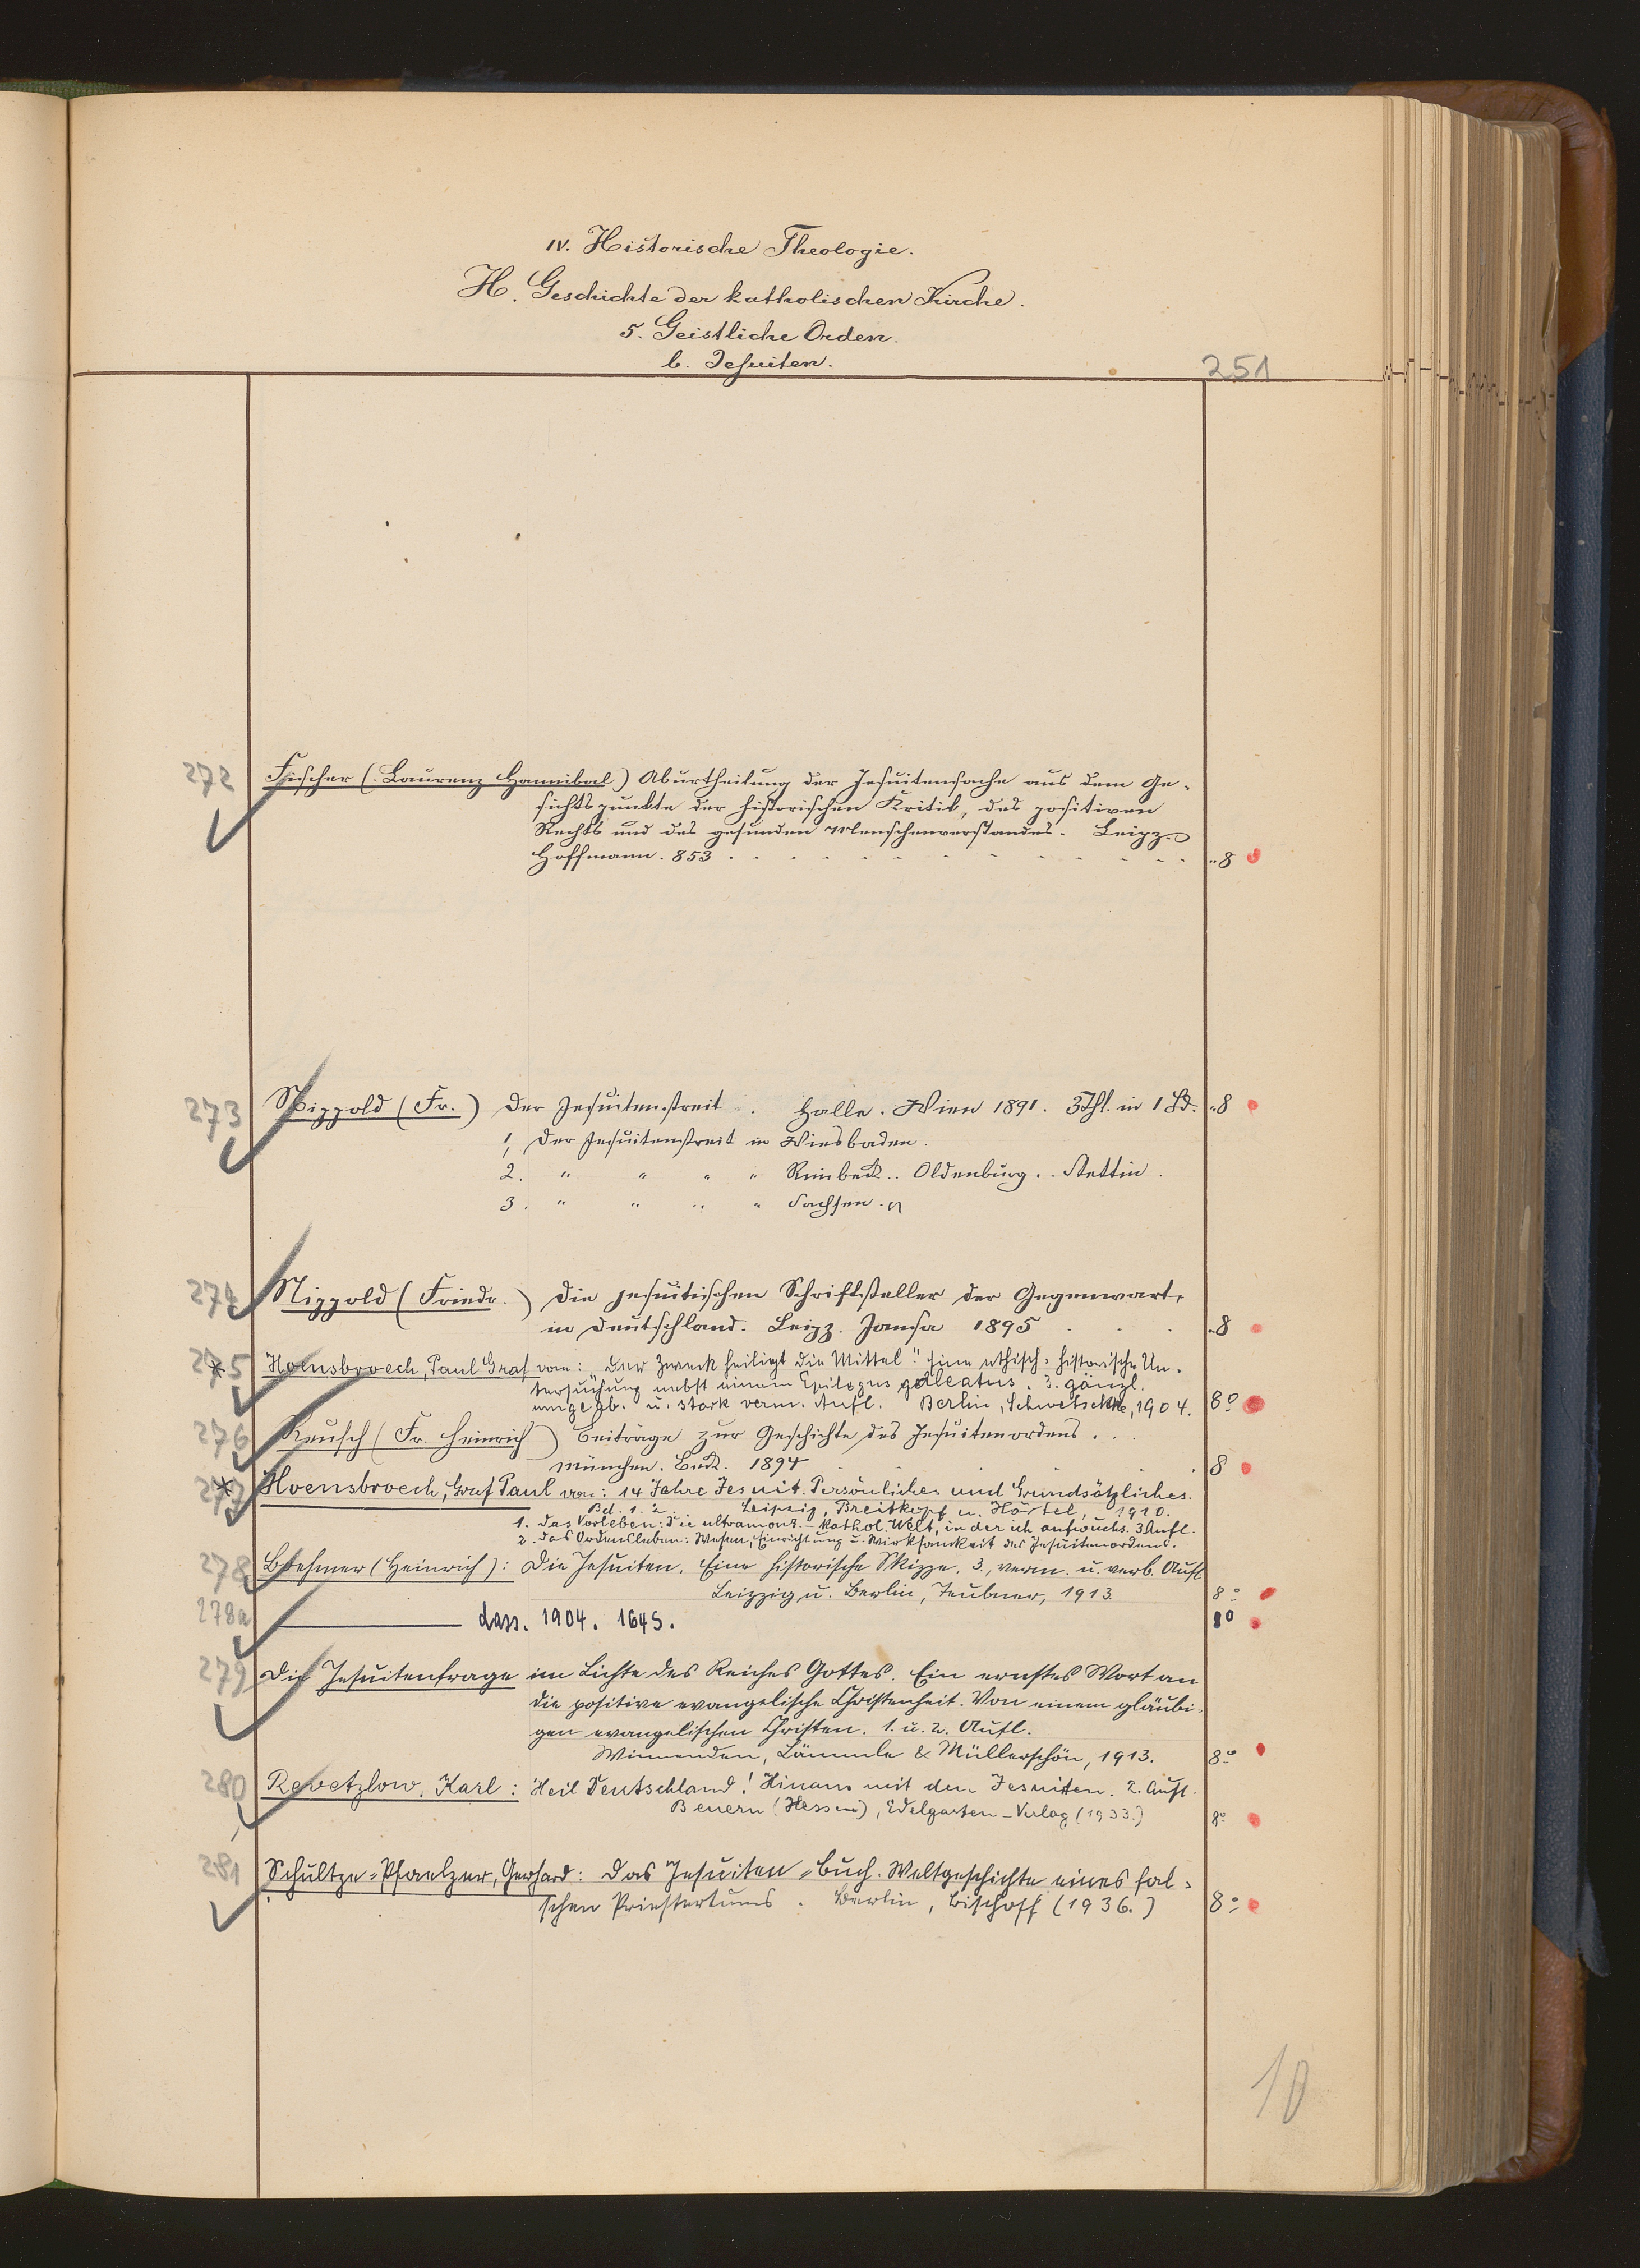 IV. Historische Theologie.
H. Geschichte der katholischen Kirche.
5. Geistliche Orden.
b. Jesuiten.
251
272 Fischer (Laurenz Hannibal) Aburtheilung der Jesuitensache aus dem Ge-
sichtspunkte der historischen Kritik, des positiven
Rechts und des gesunden Menschenverstandes. Leipz.
Hoffmann. 853 . . . . . . . . . . . . . . „8
273 Nippold (Fr.) Der Jesuitenstreit . Halle. Wien 1891. 3 Thl. in 1 Bd. „8
1, Der Jesuitenstreit in Wiesbaden.
2. " " " " Rinbeck.. Oldenburg.. Stettin.
3. " " " " Sachsen.
274 Nippold (Friedr.) Die jesuitischen Schriftsteller der Gegenwart
in Deutschland. Leipz. Jansa 1895 . . . „8
275 * Hoensbroech, Paul Graf von: "Der Zweck heiligt die Mittel." Eine ethisch-historische Un-
tersuchung nebst einem Epilogus galeatus. 3. gänzl.
umgearb. u. stark verm. Aufl. Berlin, Schwetschke, 1904. 8°
276 Reusch (Fr. Heinrich) Beiträge zur Geschichte des Jesuitenordens. . .
München. Beck. 1894 . . . 8
277 * Hoensbroech, Graf Paul von: 14 Jahre Jesuit. Persönliches und Grundsätzliches.
Bd. 1. 2. Leipzig, Breitkopf u. Härtel, 1910.
1. Das Vorleben: Die ultramont.-kathol. Welt, in der ich aufwuchs. 3 Aufl.
2. Das Ordensleben: Wesen, Einrichtung u. Wirksamkeit des Jesuitenordens.
278 Boehmer (Heinrich): Die Jesuiten. Eine historische Skizze. 3., verm. u. verb. Aufl
Leipzig u. Berlin, Teubner, 1913. 8°
278a ——— dass. 1904. 164 S. 8°
279 Die Jesuitenfrage im Lichte des Reiches Gottes. Ein ernstes Wort an
die positive evangelische Christenheit. Von einem gläubi-
gen evangelischen Christen. 1. u. 2. Aufl.
Winnenden, Lämmle & Müllerschön, 1913. 8°
280 Revetzlow, Karl: Heil Deutschland! Hinaus mit den Jesuiten. 2. Aufl.
Beuern (Hessen), Edelgarten-Verlag (1933.) 8°
281 Schultze-Pfaelzer, Gerhard: Das Jesuiten-Buch. Weltgeschichte eines fal-
schen Priestertums. Berlin, Bischoff (1936.) 8°
10